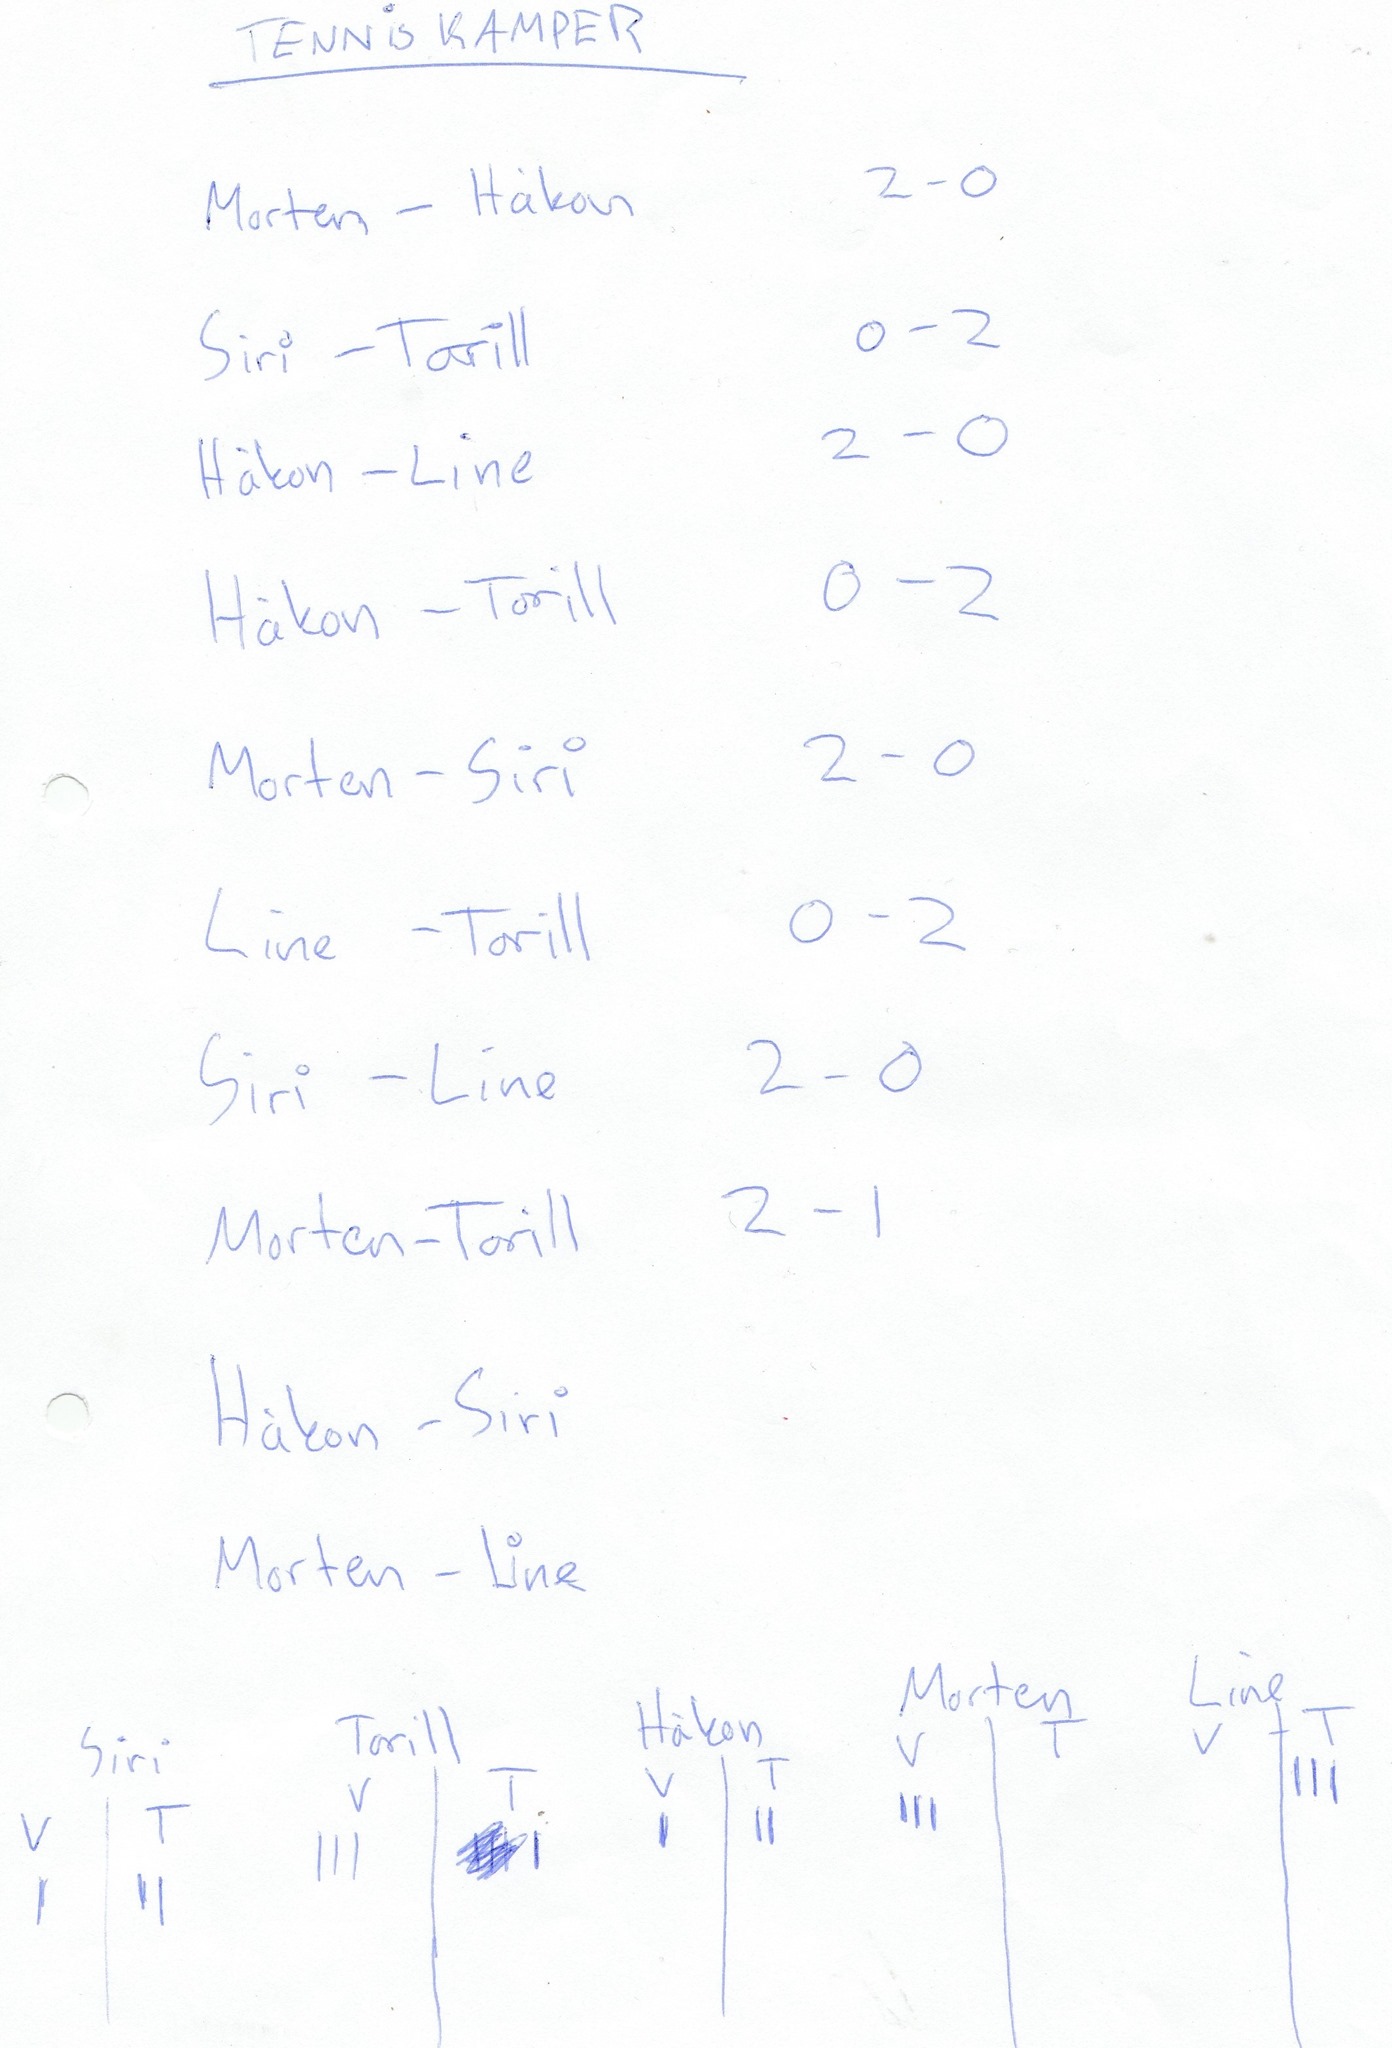 TENNIS KAMPER
Morten - Håkon 2-0
Siri - Torill 0-2
Håkon - Line 2-0
Håkon - Torill 0-2
Morten - Siri 2-0
Line - Torill 0-2
Siri - Line 2-0
Morten - Torill 2-1
Håkon - Siri
Morten - Line
Siri Torill Håkon Morten Line
V T V T V T V T V T
I II III I I II III III